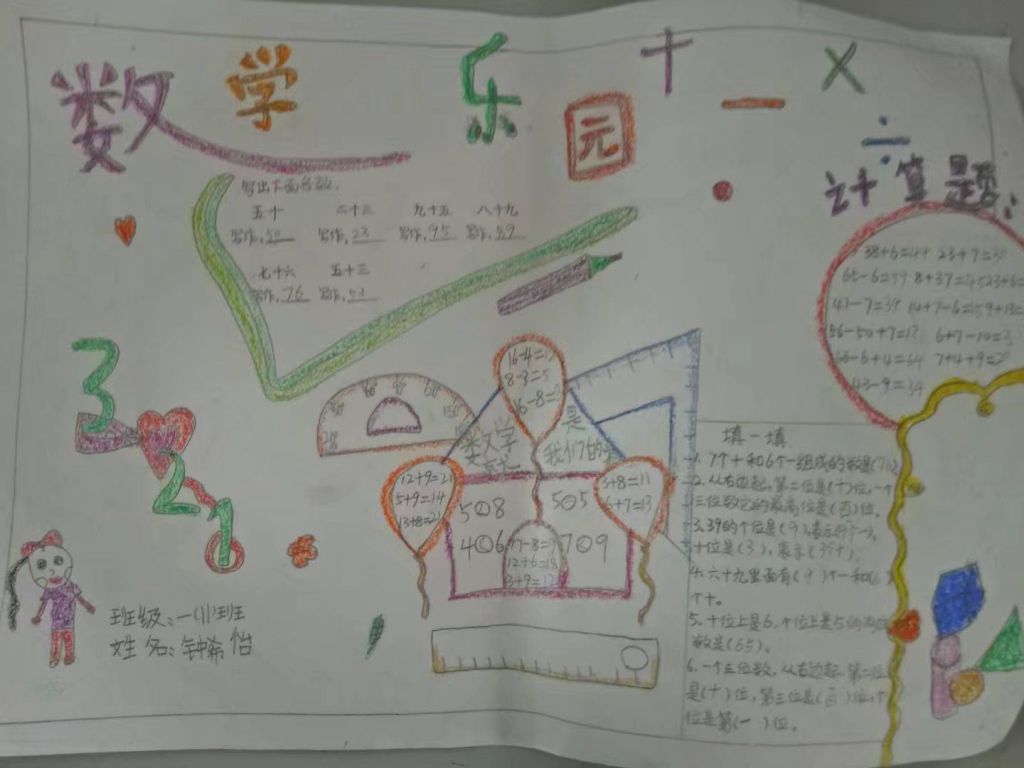 数学乐园
+ - × ÷
写出下面各数.
五十 二十三 九十五 八十九
写作,50 写作,23 写作,95 写作,89
七十六 五十三
写作,76 写作,53
计算题:
38+6=44 23+7=30
65-6=59 8+37=45
41-7=34 14+7-6=15
56-50+7=13 6+7-10=3
66-6+4=64 7+4+9=20
43-9=34
8-3=5
数学
是
我们的
12+9=21
5+9=14
13+8=21
3+8=11
6+7=13
508
505
406
709
12+6=18
3+9=12
3
2
1
填一填
1.7个十和6个一组成的数是(76)
2.从右边起,第二位是(十)位,一个
三位数它的最高位是(百)位。
3.39的个位是(9),表示(9)个一,
十位是(3),表示(3个十)。
4.六十九里面有(9)个一和(6)
个十。
5.十位上是6,个位上是5的两位
数是(65)。
6.一个三位数,从右边起,第二位
是(十)位,第三位是(百)位,个
位是第(一)位。
班级:一(1)班
姓名:钟希怡